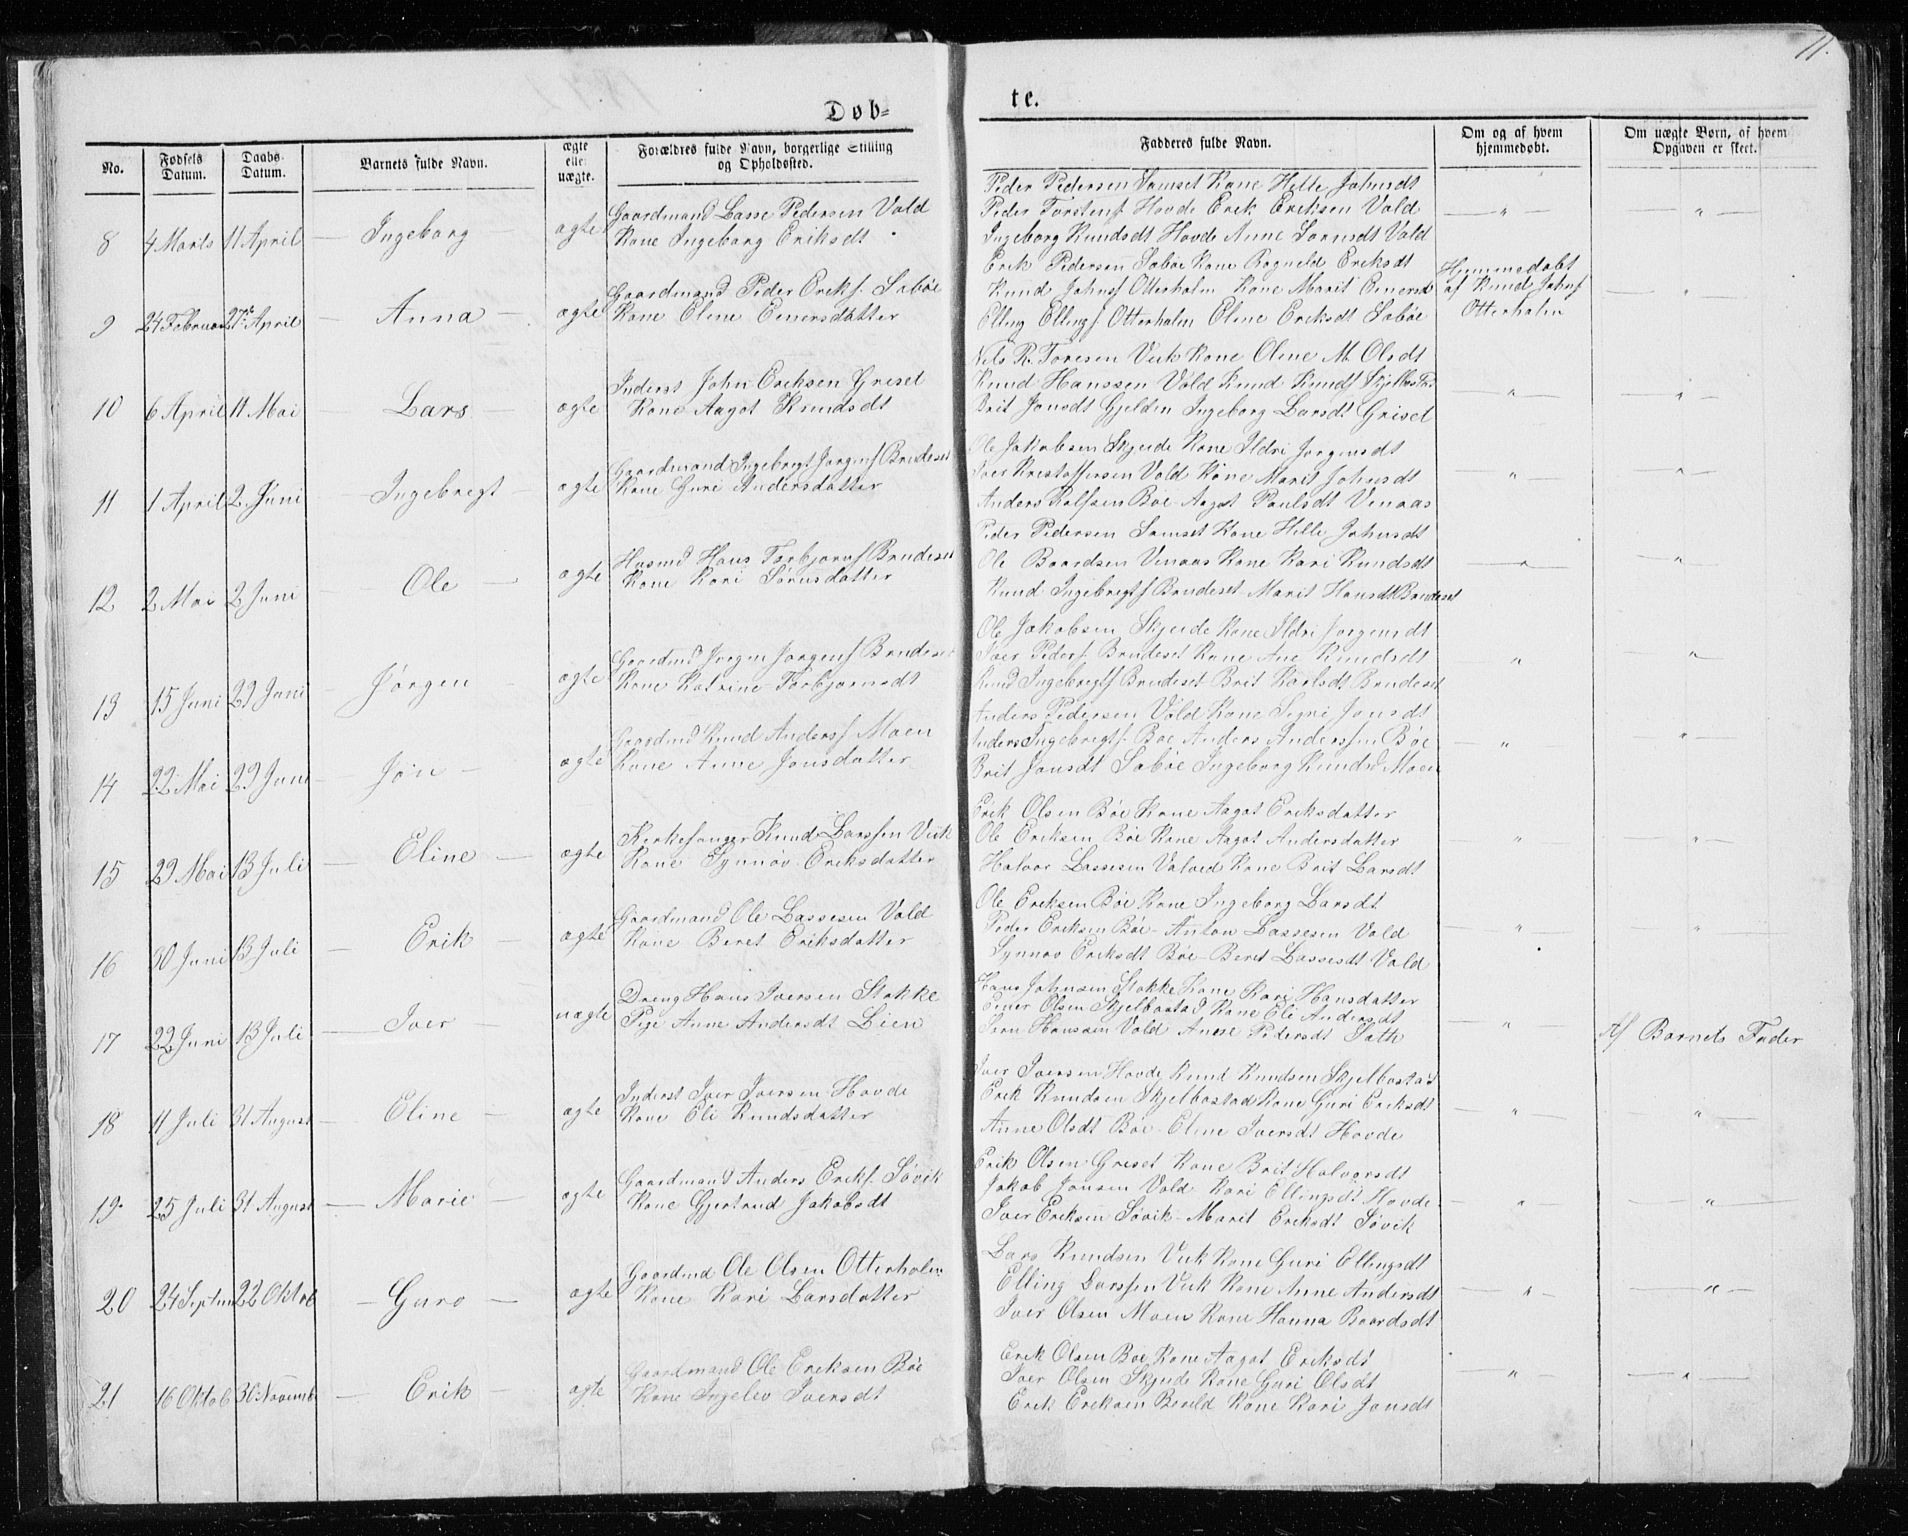 11.
Døb-
te.
No.
Fødsels Datum.
Daabs- Datum.
Barnets fulde Navn.
ægte eller uægte.
Forældres fulde Navn, borgerlige Stilling og Opholdssted.
Fadderes fulde Navn.
Om og af hvem hjemmedøbt.
Om uægte Børn, af hvem Opgaven er skeet.
8 4 Marts 11 April — Ingeborg — ægte
Gaardmand Lasse Pedersen Vold
Kone Ingeborg Eriksdt
Peder Pedersen Samset Kone Helle Johnsdt
Peder Torstens Hovde Erik Eriksen Vold
Ingeborg Knudsdt Hovde Anne Vold
— " — — " —
9 24 Februar 27de April — Anna — ægte
Gaardmand Peder Eriks. Sabøe
Kone Eline Einersdatter
Erik Pedersen Sabøe Kone Ragneld Eriksdt
Knud Johns Otterholm Kone Marit Einersd
Elling Ellings Otterholm Eline Eriksdt Sabøe
Hjemmedøbt
af Knud Johns
Otterholm
"
10 6 April 11 Mai — Lars — ægte
Inderst John Eriksen Griset
Kone Aagot Knudsdt
Nils R. Toresen Viik Kone Oline M. Olsdt
Knud Hanssen Vold Knud Knuds
Brit Jonsdt Gjelden Ingeborg Larsdt Griset
— " — — " —
11 1 April 2 Juni — Ingebregt — ægte
Gaardmand Ingebregt Jørgens Brudeset
Kone Guri Andersdatter
Ole Jakobsen Skjeide Kone Ildri Jørgensdt
Iver Kristoffersen Vold Kone Marit Johnsdt
Anders Rolfsen Bøe Aagot Paulsdt Venaas
— " — — " —
12 2 Mai 2 Juni — Ole — ægte
Husmd Hans Torbjørns Brudeset
Kone Kari Sørnsdatter
Peder Pedersen Samset Kone Hille Johnsdt
Ole Baardsen Venaas Kone Kari Knudsdt
Knud Ingebregts Brudeset Marit Hansdt Brudeset
— " — — " —
13 15 Juni 29 Juni — Jørgen — ægte
Gaardmd Jørgen Jørgens Brudeset
Kone Katrine Torbjørnsdt
Ole Jakobsen Skjeide Kone Ildri Jørgensdt
Iver Peders Brudeset Kone Ane Knudsdt
Knud Ingebregts Brudeset Brit Karlsdt Brudeset
" "
14 22 Mai 29 Juni — Jøn — ægte
Gaardmd Knud Anders Moen
Kone Anne Jonsdatter
Anders Pedersen Vold Kone Jonsdt
Anders Ingebregts Bøe Anders Anderssen Bøe
Brit Jonsdt Sabøe Ingeborg Knudsd Moen
— " — — " —
15 29 Mai 13 Juli — Eline — ægte
Kirkesanger Knud Larssen Viik
Kone Synnøv Eriksdatter
Erik Olsen Bøe Kone Aagot Eriksdatter
Ole Eriksen Bøe Kone Aagot Andersdatter
Halvor Lassesen Kone Brit Larsdt
" — " —
16 30 Juni 13 Juli — Erik — ægte
Gaardmand Ole Lassesen Vold
Kone Beret Eriksdatter
Ole Eriksen Bøe Kone Ingeborg Larsdt
Peder Eriksen Bøe Anton Lassesen Vold
Synnøv Eriksdt Bøe Beret Lassesdt Vold
— " — — " —
17 22 Juni 13 Juli — Iver — uægte
Dreng Hans Iversen Stokke
Pige Anne Andersdt Lien
Hans Johnsen Stokke Kone Kari Hansdatter
Einer Olsen Skjelbostad Kone Eli Andersdt
Hanssen Vold Anne Pedersdt Sath
— " — Af Barnets Fader
18 11 Juli 31 August — Eline — ægte
Inderst Iver Iversen Hovde
Kone Eli Knudsdatter
Iver Iversen Hovde Knud Knudsen Skjelbostad
Erik Knudsen Skjelbostad Kone Guri Eriksdt
Anne Olsdt Bøe Eline Iversdt Hovde
— " — — " —
19 25 Juli 31 August — Marie — ægte
Gaardmand Anders Eriks. Søvik
Kone Gjertrud Jakobsdt
Erik Olsen Griset Kone Brit Halvorsdt
Jakob Jonsen Vold Kari Ellingsdt Hovde
Iver Eriksen Søvik Marit Eriksdt Søvik
— " — — " —
20 24 Septem 22 Oktob — Guro — ægte
Gaardmd Ole Olsen Otterholm
Kone Kari Larsdatter
Lars Knudsen Viik Kone Guri Ellingsdt
Elling Larssen Viik Kone Anne Andersdt
Iver Olsen Moen Kone Hanna Baardsdt
— " — — " —
21 16 Oktob 30 Novemb — Erik — ægte
Gaardmand Ole Eriksen Bøe
Kone Ingelev Iversdt
Erik Olsen Bøe Kone Aagot Eriksdt
Iver Olsen Skjeide Kone Guri Olsdt
Erik Eriksen Kone Kari Jonsdt
— " — — " —